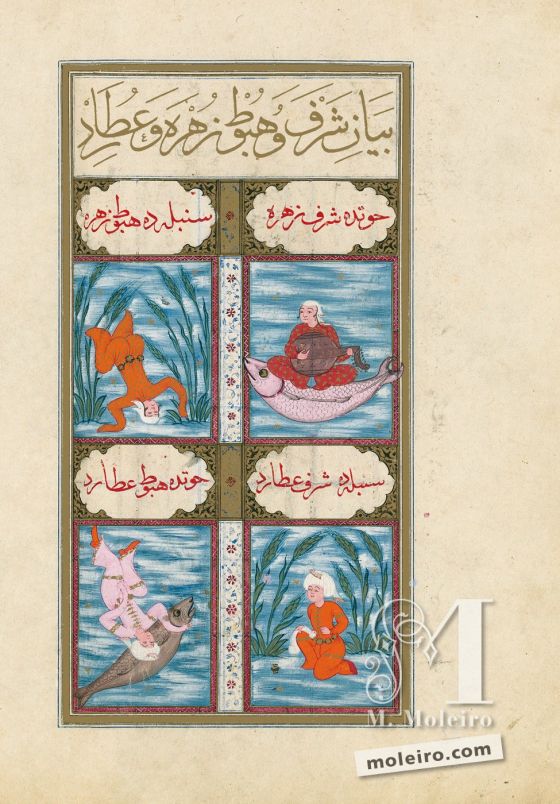 بَيَانِ شَرَفْ وَهُبُوطِ زُهْرَه وَعُطَارِدْ
حوتده شرف زهره
سنبله ده هبوط زهره
سنبله ده شرف عطارد
حوتده هبوط عطارد
M
M. Moleiro
moleiro.com